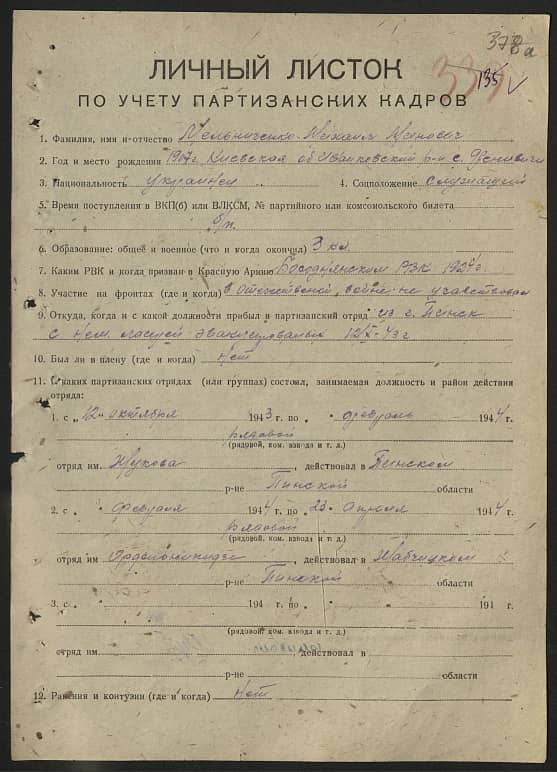 378а
335
135
ЛИЧНЫЙ ЛИСТОК
ПО УЧЕТУ ПАРТИЗАНСКИХ КАДРОВ
1. Фамилия, имя и отчество Мельниченко Михаил
2. Год и место рождения Киевская об Иванковский р-н с.
3. Национальность украинец 4. Соцположение служащий
5. Время поступления в ВКП(б) или ВЛКСМ, № партийного или комсомольского билета
б/п.
6. Образование: общее и военное (что и когда окончил) 3 кл.
7. Каким РВК и когда призван в Красную Армию РВК
8. Участие на фронтах (где и когда) в отечественной войне не участвовал
9. Откуда, когда и с какой должности прибыл в партизанский отряд из г. Пинск
с нем. эвакуированных 12/X-43 г
10. Был ли в плену (где и когда) Нет
11. В каких партизанских отрядах (или группах) состоял, занимаемая должность и район действия
отряда:
1. с „12" октября 1943 г. по „ февраль 1944 г.
рядовой
(рядовой, ком. взвода и т. д.)
отряд им. Жукова, действовал в Пинском
р-не Пинской области
2. с „ февраля 1944 г. по „23" апреля 1944 г.
рядовой
(рядовой, ком. взвода и т. д.)
отряд им Орджоникидзе, действовал в Жабчицком
р-не Пинской области
3. с „ 194 г. по „ 194 г.
(рядовой, ком. взвода и т. д.)
отряд им. действовал в
р-не области
12. Ранения и контузии (где и когда) Нет